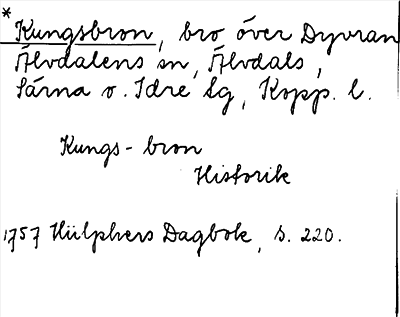 * Kungsbron, bro över Dyvran
Älvdalens sn, Älvdals,
Särna o. Idre tg, Kopp. l.
Kungs-bron
Historik
1757 Hülphers Dagbok, s. 220.